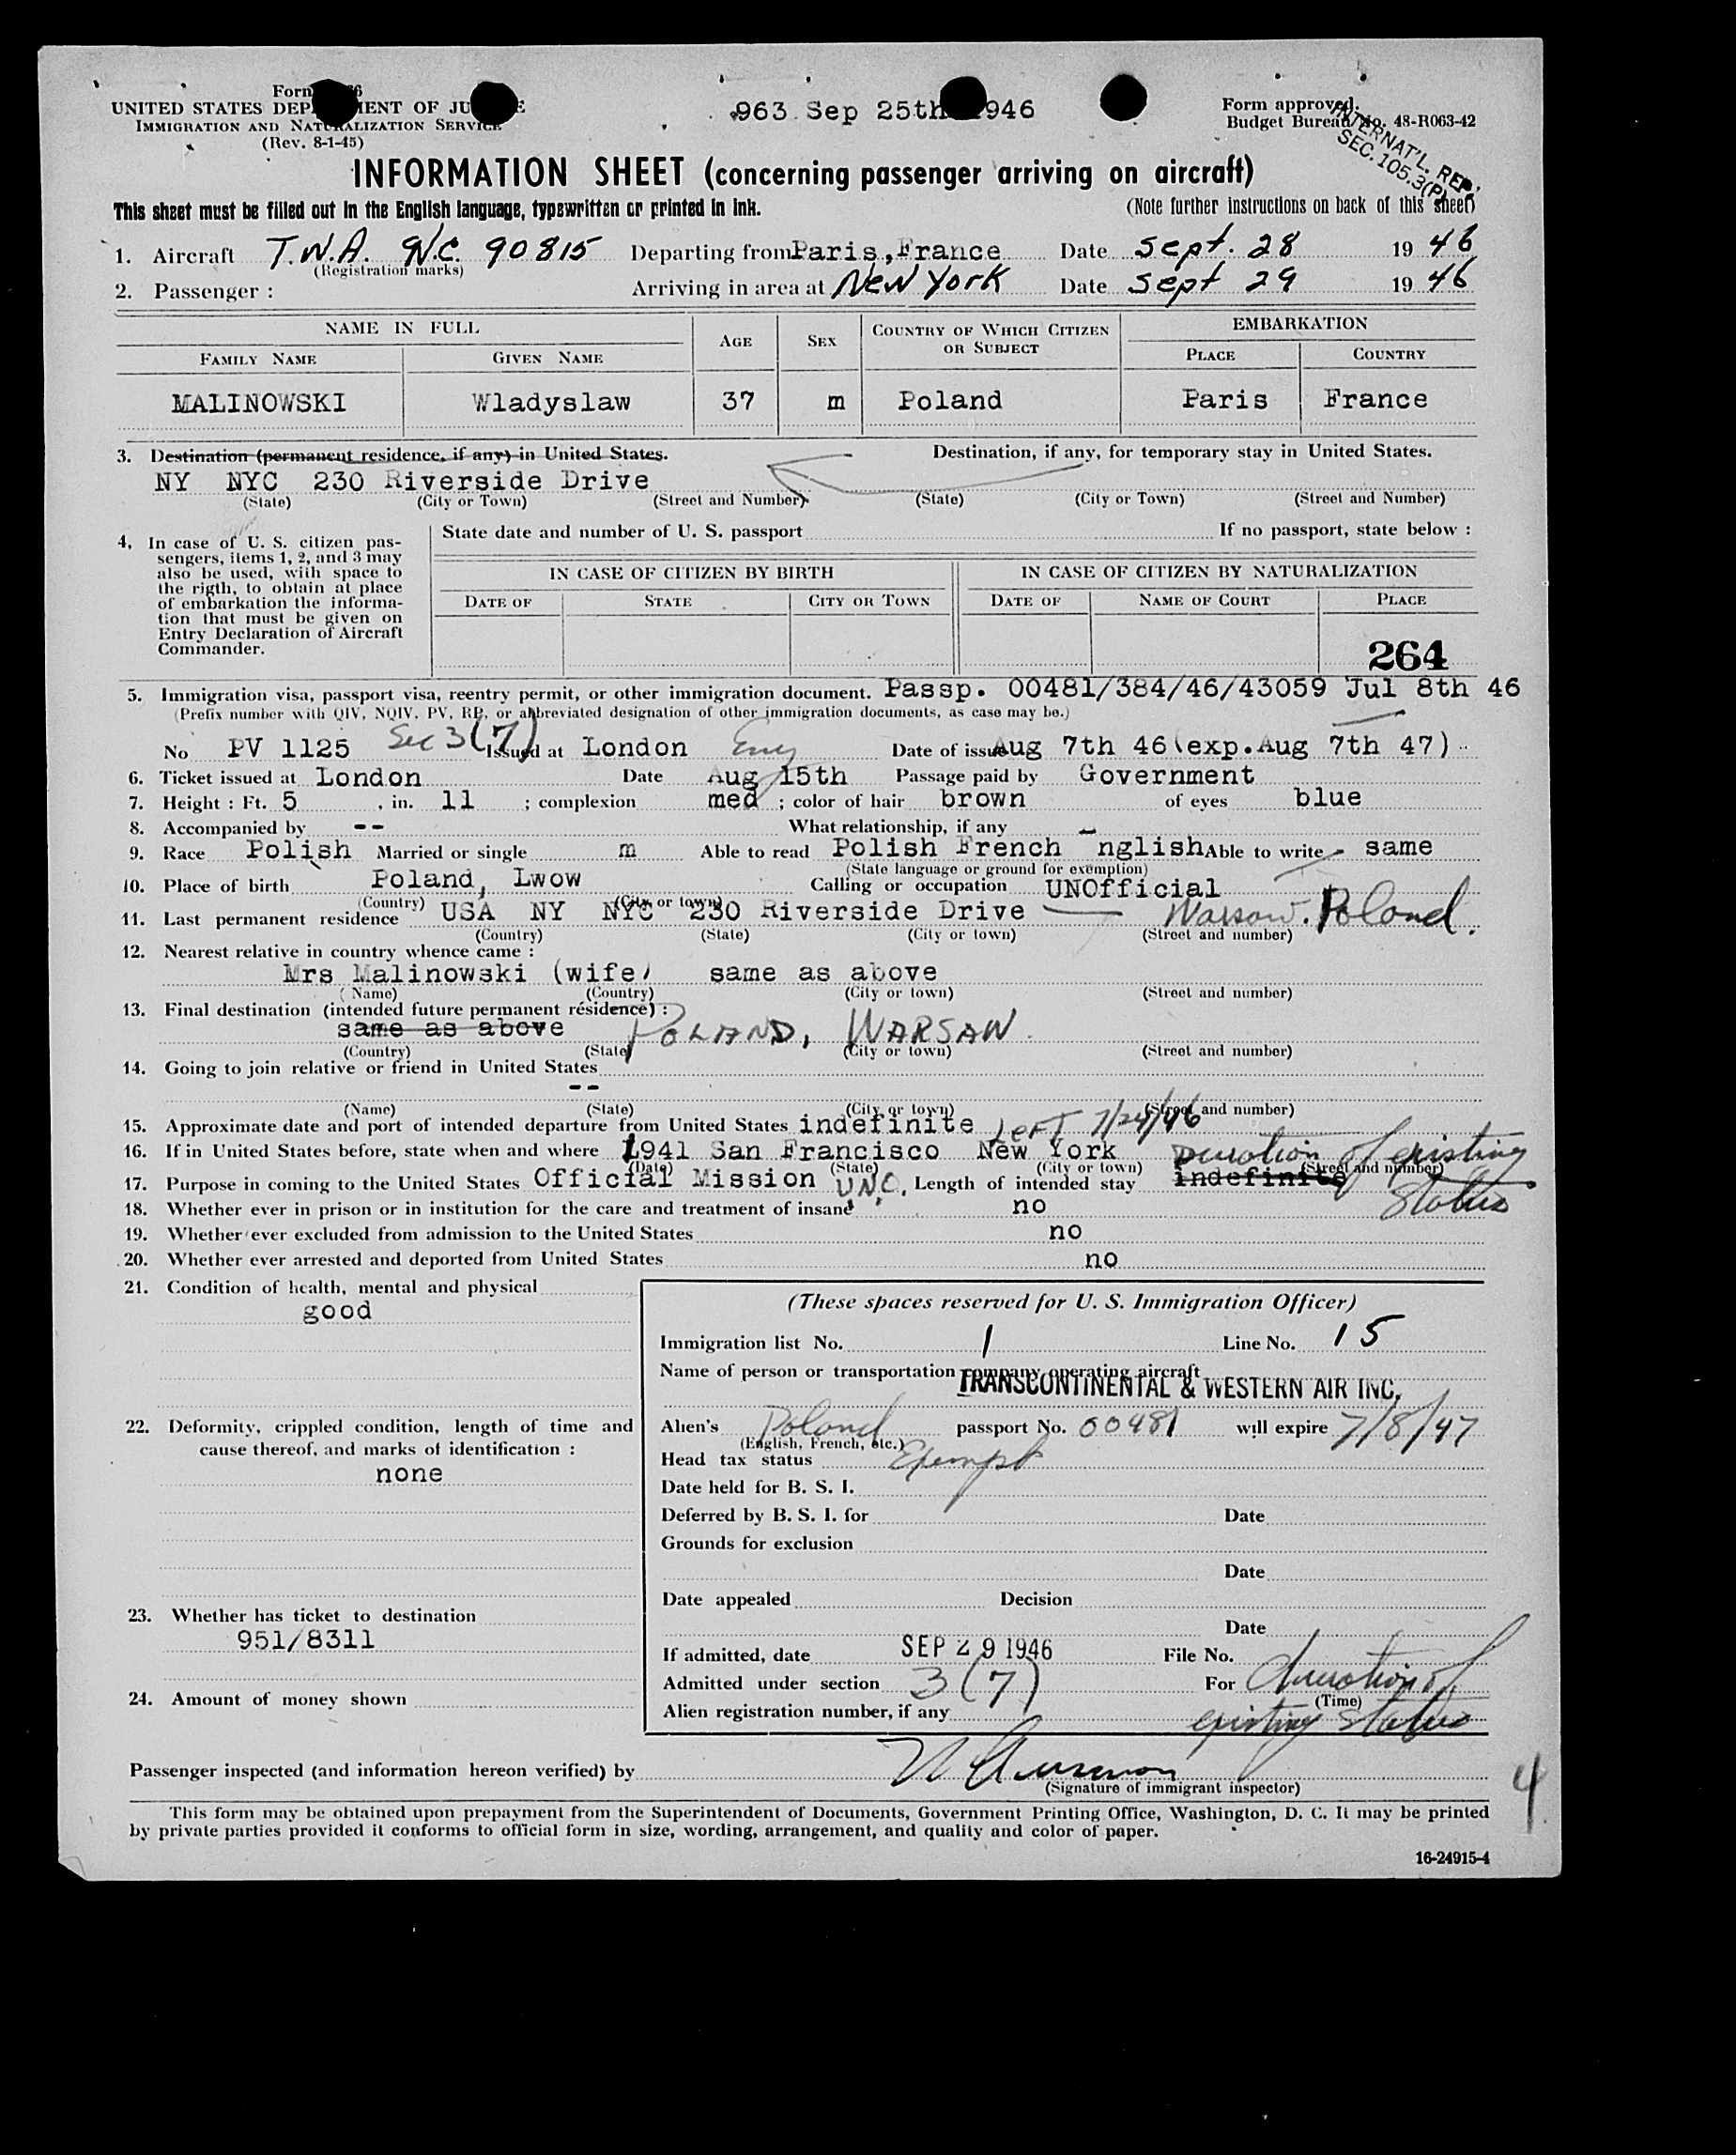 Form
UNITED STATES DEP MENT OF JU E
IMMIGRATION AND NATURALIZATION SERVICE
(Rev. 8-1-45)
963 Sep 25th 1946
Form approved.
Budget Bureau No. 48-R063-42
INTERNAT'L. REP.
SEC. 105.3(P)
INFORMATION SHEET (concerning passenger arriving on aircraft)
This sheet must be filled out in the English language, typewritten or printed in ink.
(Note further instructions on back of this sheet)
1. Aircraft T.W.A. N.C. 90815 Departing from Paris, France Date Sept. 28 19 46
(Registration marks)
2. Passenger : Arriving in area at New York Date Sept 29 19 46
NAME IN FULL AGE SEX COUNTRY OF WHICH CITIZEN OR SUBJECT EMBARKATION
FAMILY NAME GIVEN NAME PLACE COUNTRY
MALINOWSKI Wladyslaw 37 m Poland Paris France
3. Destination (permanent residence, if any) in United States. Destination, if any, for temporary stay in United States.
NY NYC 230 Riverside Drive
(State) (City or Town) (Street and Number) (State) (City or Town) (Street and Number)
4. In case of U. S. citizen pas-
sengers, items 1, 2, and 3 may
also be used, with space to
the rigth, to obtain at place
of embarkation the informa-
tion that must be given on
Entry Declaration of Aircraft
Commander.
State date and number of U. S. passport If no passport, state below :
IN CASE OF CITIZEN BY BIRTH IN CASE OF CITIZEN BY NATURALIZATION
DATE OF STATE CITY OR TOWN DATE OF NAME OF COURT PLACE
264
5. Immigration visa, passport visa, reentry permit, or other immigration document. Passp. 00481/384/46/43059 Jul 8th 46
(Prefix number with QIV, NQIV, PV, RP, or abbreviated designation of other immigration documents, as case may be.)
No PV 1125 Sec 3(7) Issued at London Date of issue Aug 7th 46 (exp.Aug 7th 47)
6. Ticket issued at London Date Aug 15th Passage paid by Government
7. Height : Ft. 5 , in. 11 ; complexion med ; color of hair brown of eyes blue
8. Accompanied by -- What relationship, if any -
9. Race Polish Married or single m Able to read Polish French nglish Able to write - same
(State language or ground for exemption)
10. Place of birth Poland, Lwow Calling or occupation UNOfficial
(Country) (City or town)
11. Last permanent residence USA NY NYC 230 Riverside Drive Warsaw. Poland.
(Country) (State) (City or town) (Street and number)
12. Nearest relative in country whence came :
Mrs Malinowski (wife) same as above
(Name) (Country) (City or town) (Street and number)
13. Final destination (intended future permanent résidence) :
same as above POLAND, WARSAW
(Country) (State) (City or town) (Street and number)
14. Going to join relative or friend in United States
--
(Name) (State) (City or town) (Street and number)
15. Approximate date and port of intended departure from United States indefinite Left 7/24/46
16. If in United States before, state when and where 1941 San Francisco New York
(Date) (State) (City or town) (Street and number)
Duration of existing
17. Purpose in coming to the United States Official Mission U.N.O. Length of intended stay indefinite
Status
18. Whether ever in prison or in institution for the care and treatment of insane no
19. Whether ever excluded from admission to the United States no
20. Whether ever arrested and deported from United States no
21. Condition of health, mental and physical
good
22. Deformity, crippled condition, length of time and
cause thereof, and marks of identification :
none
23. Whether has ticket to destination
951/8311
24. Amount of money shown
(These spaces reserved for U. S. Immigration Officer)
Immigration list No. 1 Line No. 15
Name of person or transportation company operating aircraft
TRANSCONTINENTAL & WESTERN AIR INC.
Alien's Poland passport No. 00481 will expire 7/8/47
(English, French, etc.)
Head tax status Exempt
Date held for B. S. I.
Deferred by B. S. I. for Date
Grounds for exclusion
Date
Date appealed Decision
Date
If admitted, date SEP 29 1946 File No.
Admitted under section 3(7) For duration of
(Time)
Alien registration number, if any existing status
Passenger inspected (and information hereon verified) by
(Signature of immigrant inspector)
4
This form may be obtained upon prepayment from the Superintendent of Documents, Government Printing Office, Washington, D. C. It may be printed
by private parties provided it conforms to official form in size, wording, arrangement, and quality and color of paper.
16-24915-4